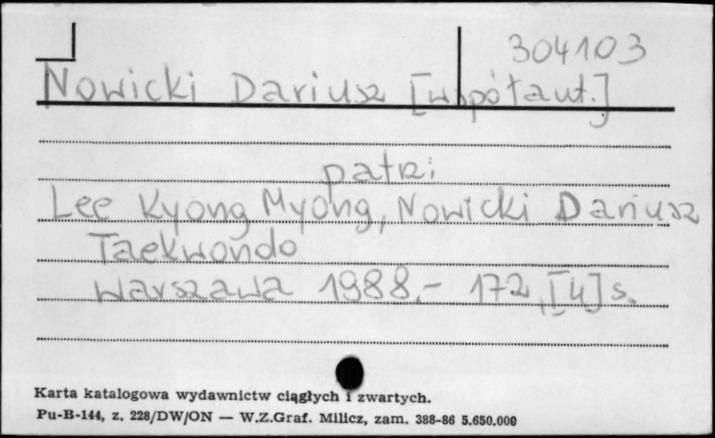 304103
Nowicki Dariusz [współaut.]
patrz:
Lee Kyong Myong, Nowicki Dariusz
Taekwondo
Warszawa 1988.- 172,[4]s.
Karta katalogowa wydawnictw ciągłych i zwartych.
Pu-B-144, z. 228/DW/ON — W.Z.Graf. Milicz, zam. 388-86 5.650.000